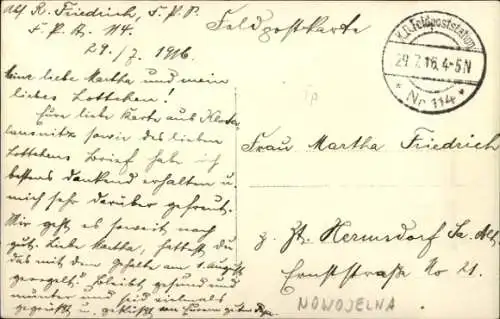 Abs. R. Friedrich, F. P. S.
F. P. A. 114.
29./7. 1916.
Feldpostkarte
K.D. Feldpoststation
29.7.16. 4-5N
* Nr. 114 *
Meine liebe Martha und mein
liebes Lottchen!
Eure liebe Karte aus Kloster
lausnitz sowie des lieben
Lottchens Brief habe ich
bestens dankend erhalten u.
mich sehr darüber gefreut.
Mir geht es soweit noch
gut. Liebe Martha, hattest du
das mit dem Gehalte am 1. August
geregelt? Bleibt gesund und
munter und seid vielmals
gegrüßt u. geküsst von Eurem guten Papa.
Frau Martha Friedrich
z. Zt. Hermsdorf Sa. Alt.
Ernststraße No 21.
NOWOJELNA